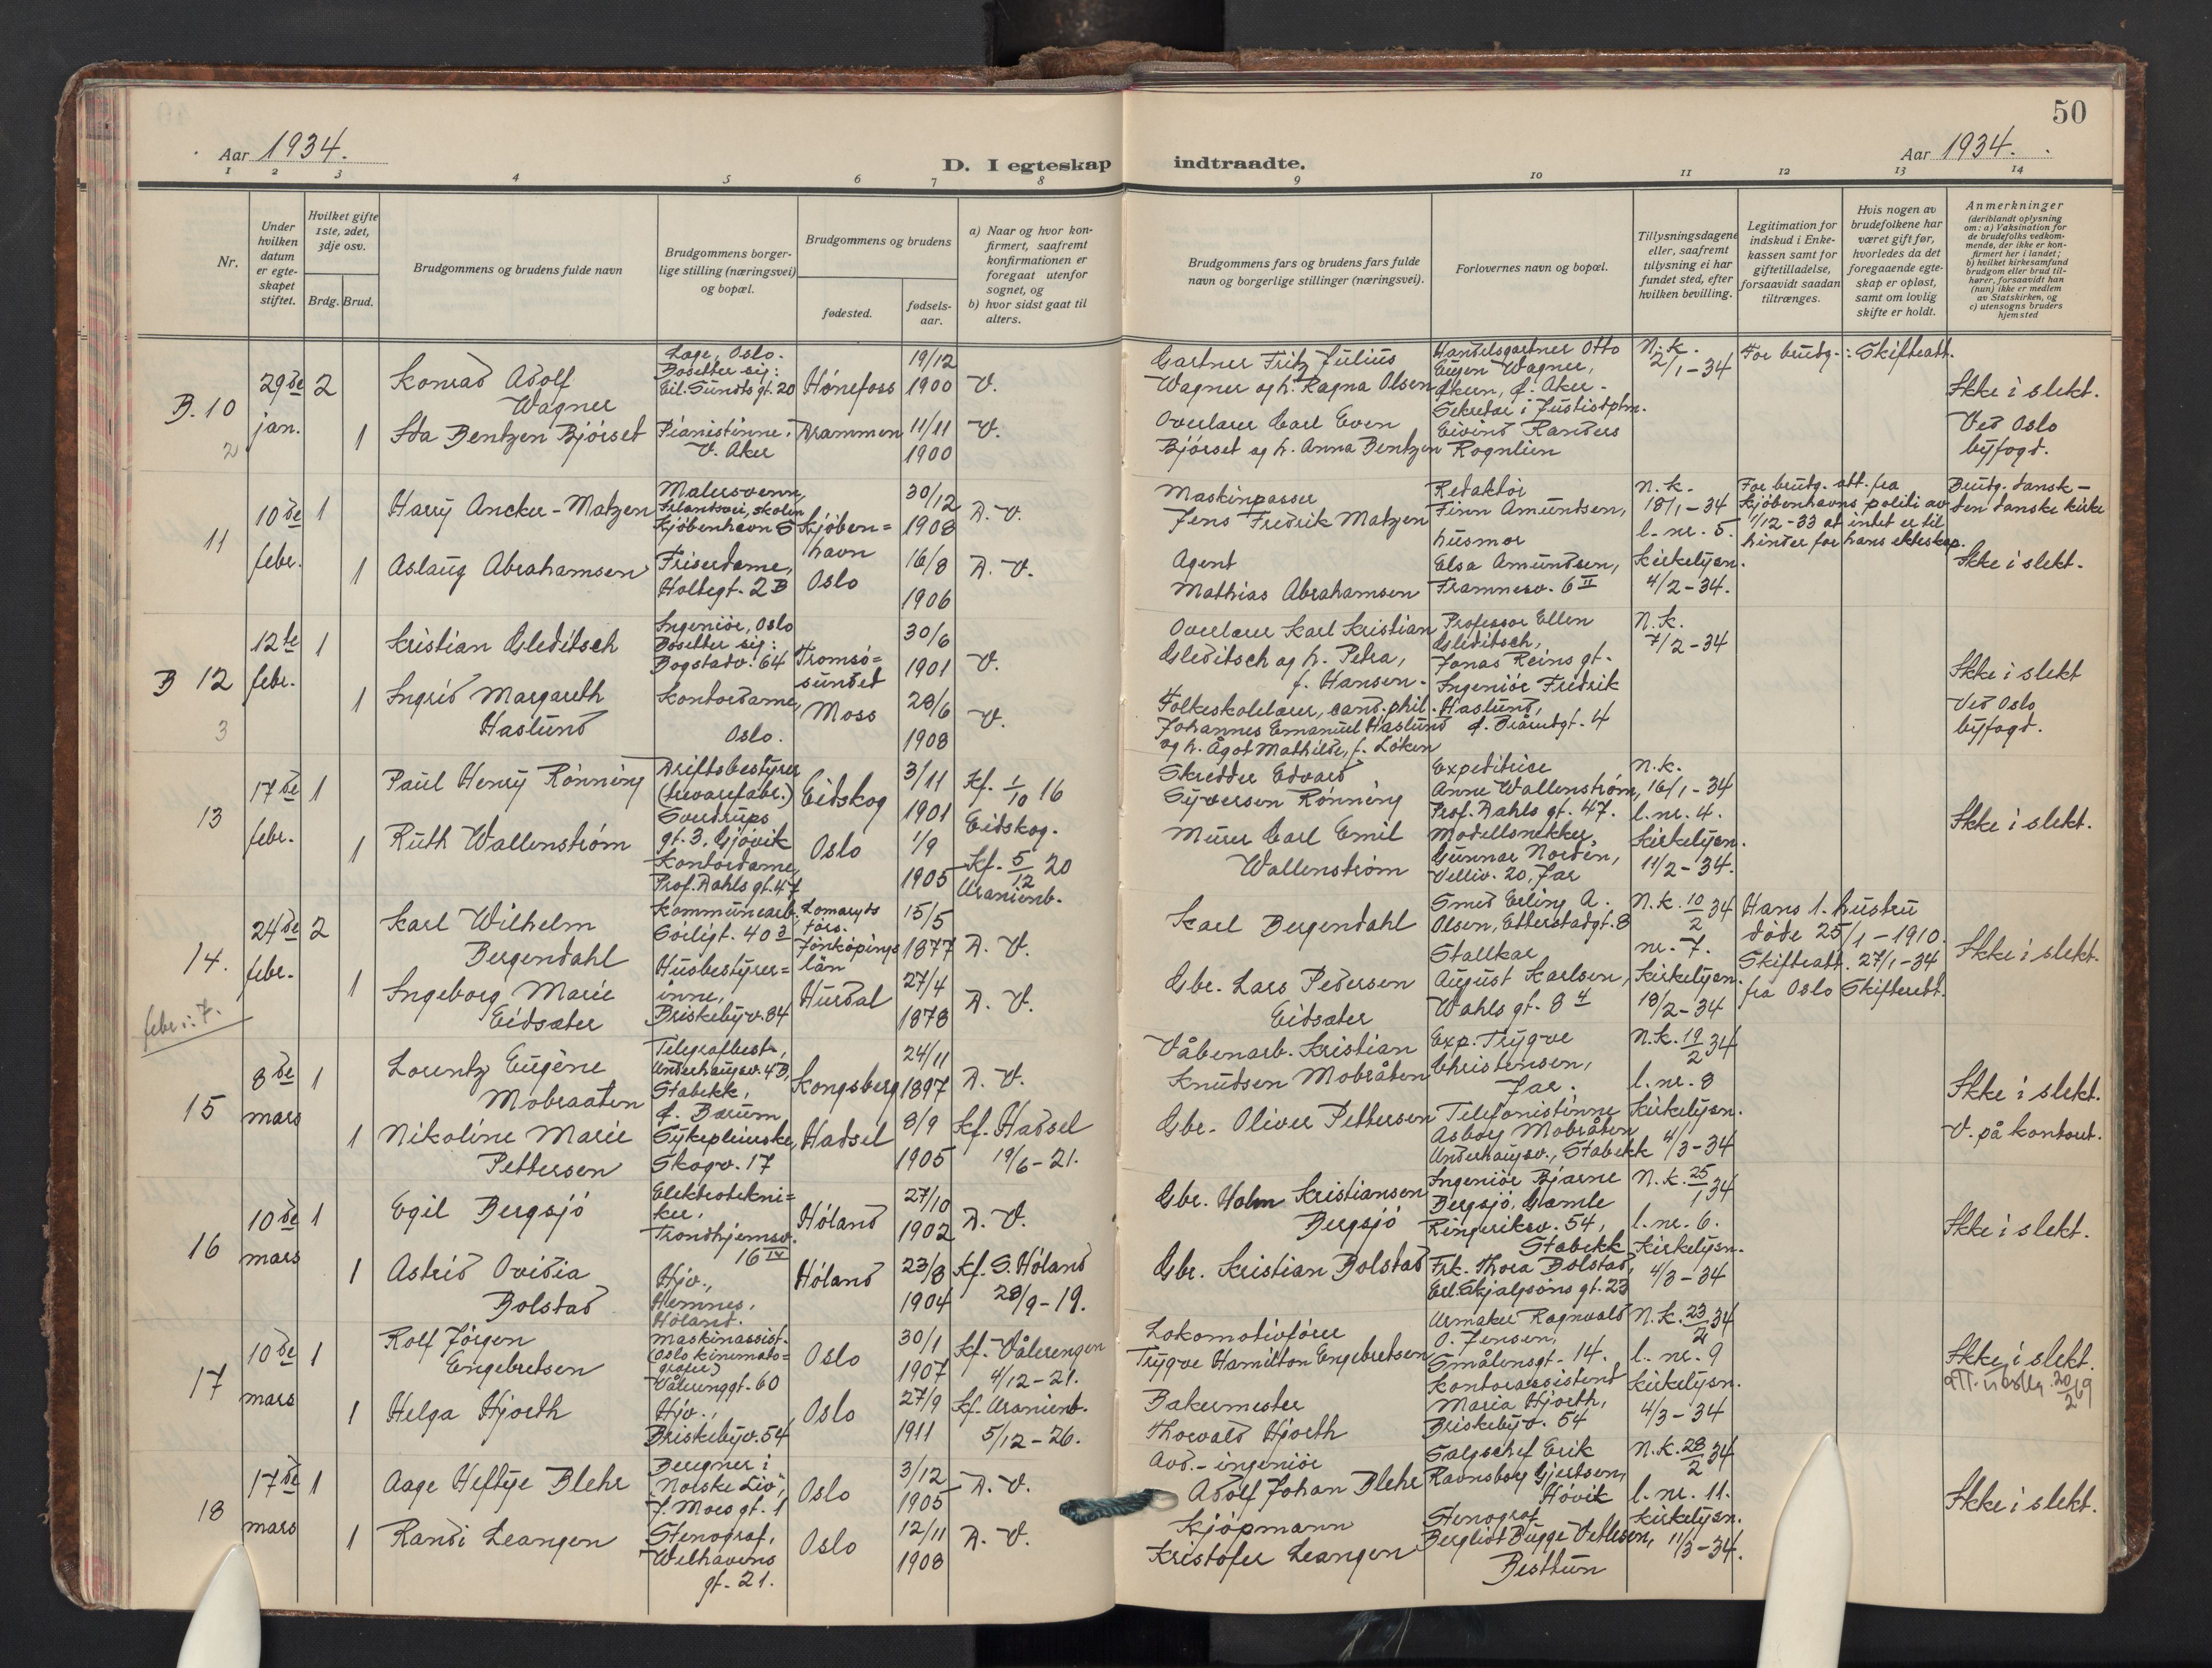 50
Aar 1934.
D. I egteskap indtraadte.
Aar 1934.
1 2 3 4 5 6 7 8 9 10 11 12 13 14
Nr.
Under hvilken datum er egteskapet stiftet.
Hvilket gifte 1ste, 2det, 3dje osv.
Brdg. Brud.
Brudgommens og brudens fulde navn
Brudgommens borgerlige stilling (næringsvei) og bopæl.
Brudgommens og brudens
fødested.
fødselsaar.
a) Naar og hvor konfirmert, saafremt konfirmationen er foregaat utenfor sognet, og
b) hvor sidst gaat til alters.
Brudgommens fars og brudens fars fulde navn og borgerlige stillinger (næringsvei).
Forlovernes navn og bopæl.
Tillysningsdagene eller, saafremt tillysning ei har fundet sted, efter hvilken bevilling.
Legitimation for indskud i Enkekassen samt for giftetilladelse, forsaavidt saadan tiltrænges.
Hvis nogen av brudefolkene har været gift før, hvorledes da det foregaaende egteskap er opløst, samt om lovlig skifte er holdt.
Anmerkninger
(deriblandt oplysning om: a) Vaksination for de brudefolks vedkommende, der ikke er konfirmert her i landet; b) hvilket kirkesamfund brudgom eller brud tilhører, forsaavidt han (hun) ikke er medlem av Statskirken, og c) utensogns bruders hjemsted
B. 10
2
29de jan.
2
Konrad Adolf Wagner
Læge, Oslo. Bosetter sig: Eil. Sundts gt. 20
Hønefoss
19/12 1900
V.
Gartner Fritz Julius Wagner og h. Ragna Olsen
Handelsgartner Otto Eugen Wagner, Økern, Ø. Aker.
N.k. 2/1-34
For brudg.: Skifteatt.
Ikke i slekt.
1
Ida Bentzen Bjørset
Pianistinne, V. Aker
Drammen
11/11 1900
V.
Overlærer Carl Even Bjørset og h. Anna Bentzen
Sekretær i Justisdptm. Eivind Randers Rognlien
Ved Oslo byfogd.
11
10de febr.
1
Harry Ancker-Matzen
Malersvenn, Kjøbenhavn S
Kjøbenhavn
30/12 1908
D. V.
Maskinpasser Jens Fredrik Matzen
Redaktør Finn Amundsen,
N.k. 18/1-34 l. nr. 5.
For brudg. att. fra Kjøbenhavns politi av 1/12-33 at intet er til hinder for hans ekteskap.
Brudg. dansk - den danske kirke
1
Aslaug Abrahamsen
Friserdame, Holtegt. 2B
Oslo
16/8 1906
D. V.
Agent Mathias Abrahamsen
husmor Elsa Amundsen, Framnesv. 6 II
Kirkelysn. 4/2-34.
Ikke i slekt.
B 12
3
12te febr.
1
Kristian Gleditsch
Ingeniør, Oslo Bosetter sig: Bogstadv. 64
Tromsøsundet
30/6 1901
V.
Overlærer Karl Kristian Gleditsch og h. Petra, f. Hansen.
Professor Ellen Gleditsch, Jonas Reins gt.
N.k. 7/2-34
Ikke i slekt
1
Ingrid Margareth Haslund
Kontordame, Oslo.
Moss
28/6 1908
V.
Folkeskolelærer, cand. phil. Johannes Emanuel Haslund og h. Ågot Mathilde, f. Løken
Ingeniør Fredrik Haslund,
Ved Oslo byfogd.
13
17de febr.
1
Paul Henry Rønning
Driftsbestyrer (trevarefabr.) Sverdrups gt. 3, Gjøvik
Eidskog
3/11 1901
Kf. 1/10 16 Eidskog.
Skredder Edvard Syversen Rønning
Expeditrice Anne Wallenstrøm, Prof. Dahls gt. 47.
N.k. 16/1-34 l. nr. 4.
Ikke i slekt.
1
Ruth Wallenstrøm
Kontordame, Prof. Dahls gt. 47
Oslo
1/9 1905
Kf. 5/12 20 Uranienb.
Murer Carl Emil Wallenstrøm
Modellsnekker Gunnar Nordén, Velliv. 20, Jar
Kirkelysn. 11/2-34.
14.
febr.: 7.
24de febr.
2
Karl Wilhelm Bergendahl
Kommunearb. Sørligt. 40 3
Lomaryds förs. Jönköpings län
15/5 1877
D. V.
Karl Bergendahl
Smed Erling A. Olsen, Etterstadgt. 8
N.k. 10/2 34 nr. 7.
Hans 1. hustru døde 25/1-1910. Skifteatt. 27/1-34 fra Oslo Skifterett.
Ikke i slekt.
1
Ingeborg Marie Eidsæter
Husbestyrerinne, Briskebyv. 84
Hurdal
27/4 1878
D. V.
Gbr. Lars Pedersen Eidsæter
Stallkar August Karlsen, Wahls gt. 8 4
Kirkelysn. 18/2-34
15
8de mars
1
Lorentz Eugène Mobraaten
Telegrafbest., Underhaugsv. 4B, Stabekk, Ø. Bærum
Kongsberg
24/11 1897
D. V.
Våbenarb. Kristian Knudsen Mobråten
Exp. Trygve Christensen, Jar.
N.k. 19/2 34 l. nr. 8
Ikke i slekt.
1
Nikoline Marie Pettersen
Sykepleierske, Skogv. 17
Hadsel
8/9 1905
Kf. Hadsel 19/6-21.
Gbr. Oliver Pettersen
Telefonistinne Asborg Mobråten Underhaugsv., Stabekk
Kirkelysn. 4/3-34
V. på kontoret.
16
10de mars
1
Egil Bergsjø
Elektrotekniker, Trondhjemsv. 16 IV
Høland
27/10 1902
D. V.
Gbr. Holm Kristiansen Bergsjø
Ingeniør Bjarne Bergsjø, Gamle Ringeriksv. 54, Stabekk
N.k. 25/1 34 l. nr. 6.
Ikke i slekt.
1
Astrid Ovidia Bolstad
Hjv., Hemnes, Høland.
Høland
23/8 1904
Kf. S. Høland 28/9-19.
Gbr. Kristian Bolstad
Frk. Thora Bolstad, Erl. Skjalgsøns gt. 23
Kirkelysn. 4/3-34
17
10de mars
1
Rolf Jørgen Engebretsen
Maskinassist. (Oslo kinematografer) Vålerenggt. 60
Oslo
30/1 1907
Kf. Vålerengen 4/12-21.
Lokomotivfører Trygve Hamilton Engebretsen
Urmaker Ragnvald O. Jensen, Smålensgt. 14.
N.k. 23/2 34 l. nr. 9
Ikke i slekt.
1
Helga Hjorth
Hjv., Briskebyv. 54
Oslo
27/9 1911
Kf. Uranienb. 5/12-26.
Bakermester Thorvald Hjorth
Kontorassistent Maria Hjorth, Briskebyv. 54
Kirkelysn. 4/3-34
18
17de mars
1
Aage Heftye Blehr
Beregner i "Norske Liv", J. Moes gt. 1
Oslo
3/12 1905
D. V.
Avd.-ingeniør Adolf Johan Blehr
Salgschef Erik Ravnsborg Gjertsen, Høvik
N.k. 28/2 34 l. nr. 11.
Ikke i slekt.
1
Randi Leangen
Stenograf, Welhavens gt. 21.
Oslo
12/11 1908
D. V.
Kjøpmann Kristofer Leangen
Stenograf Bergliot Bugge Vetlesen, Besttun
Kirkelysn. 11/3-34.